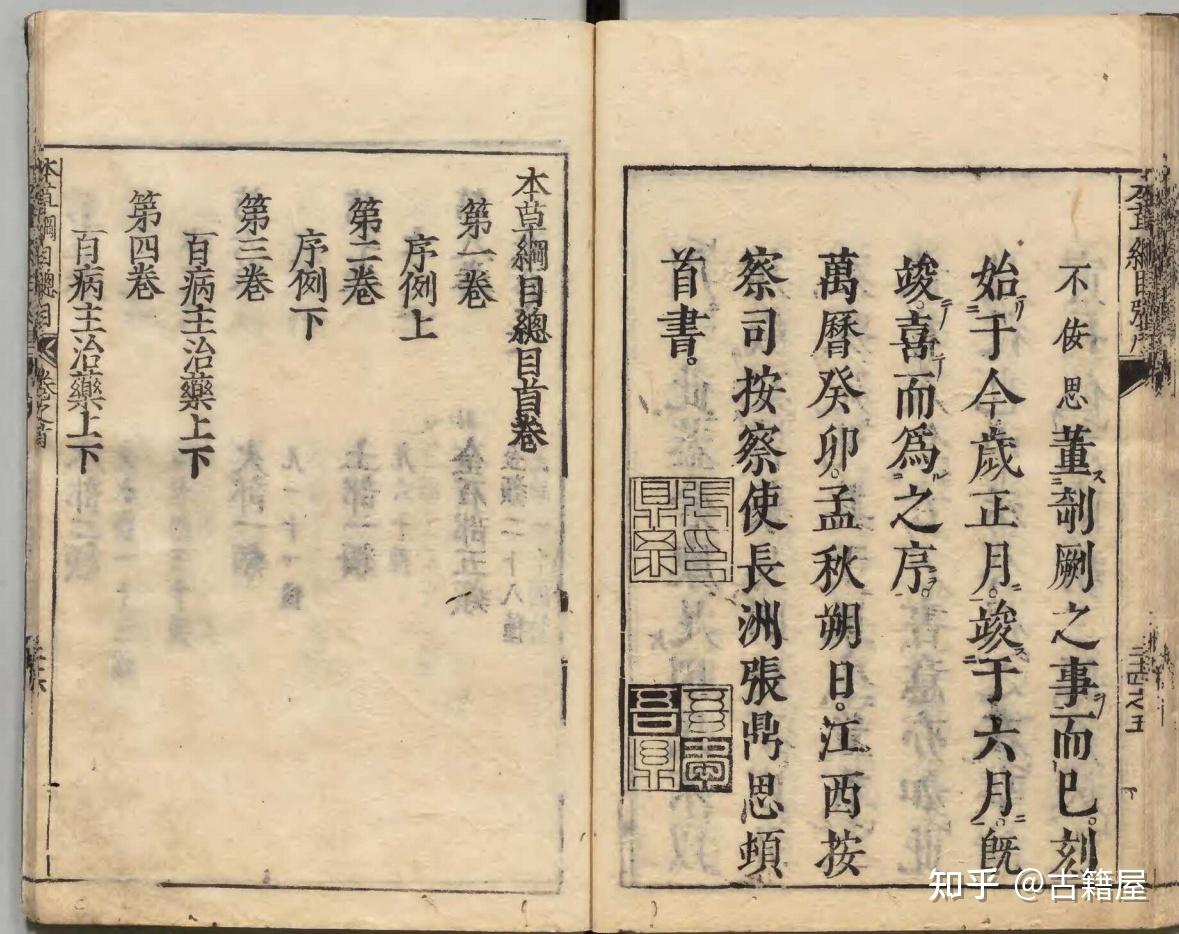 不佞思董剞劂之事而已。刻
始于今歲正月。竣于六月。既
竣。喜而為之序。
萬曆癸卯。孟秋朔日。江西按
察司按察使長洲張鼎思頓
首書。
本草綱目總目首卷
第一卷
序例上
第二卷
序例下
第三卷
百病主治藥上下
第四卷
百病主治藥上下
本草綱目總目 卷之首
知乎 @古籍屋